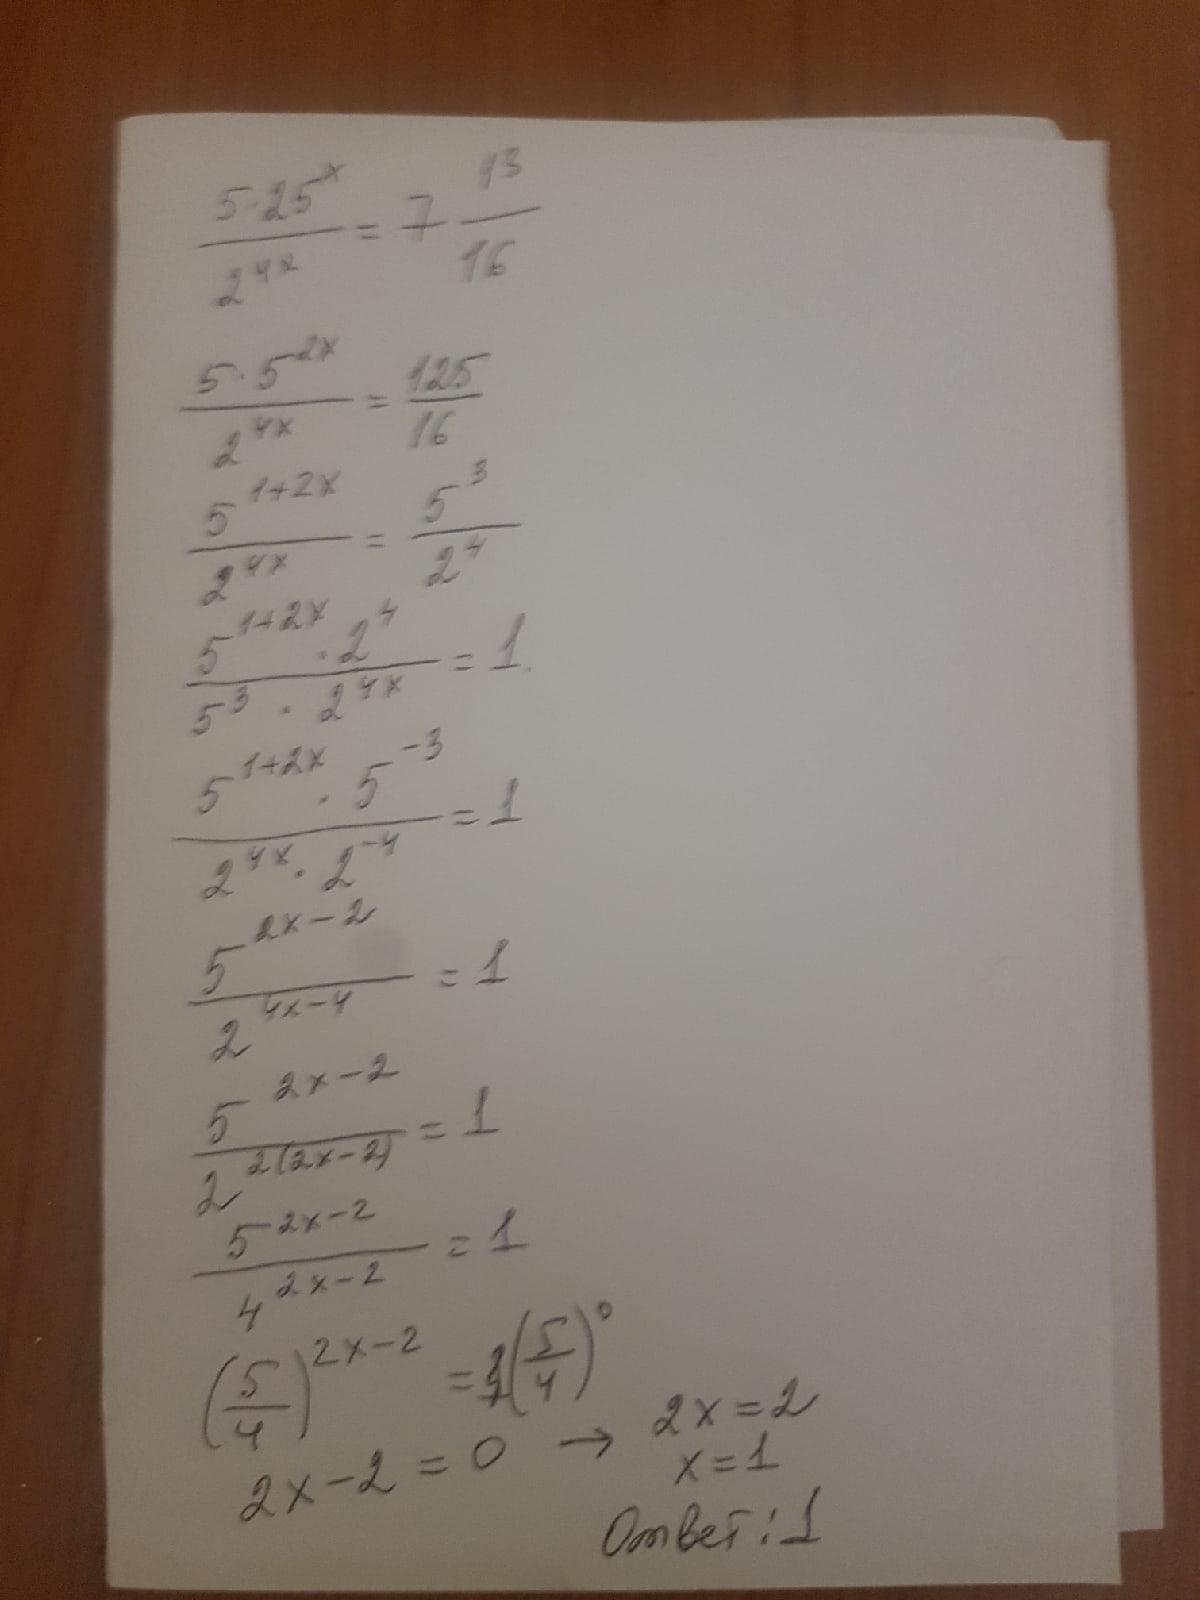 5·25^x / 2^4x = 7 13/16
5·5^2x / 2^4x = 125/16
5^1+2x / 2^4x = 5^3 / 2^4
5^1+2x · 2^4 / 5^3 · 2^4x = 1.
5^1+2x · 5^-3 / 2^4x · 2^-4 = 1
5^2x-2 / 2^4x-4 = 1
5^2x-2 / 2^2(2x-2) = 1
5^2x-2 / 4^2x-2 = 1
(5/4)^2x-2 = (5/4)^0
2x-2 = 0 → 2x=2
x=1
Ответ: 1